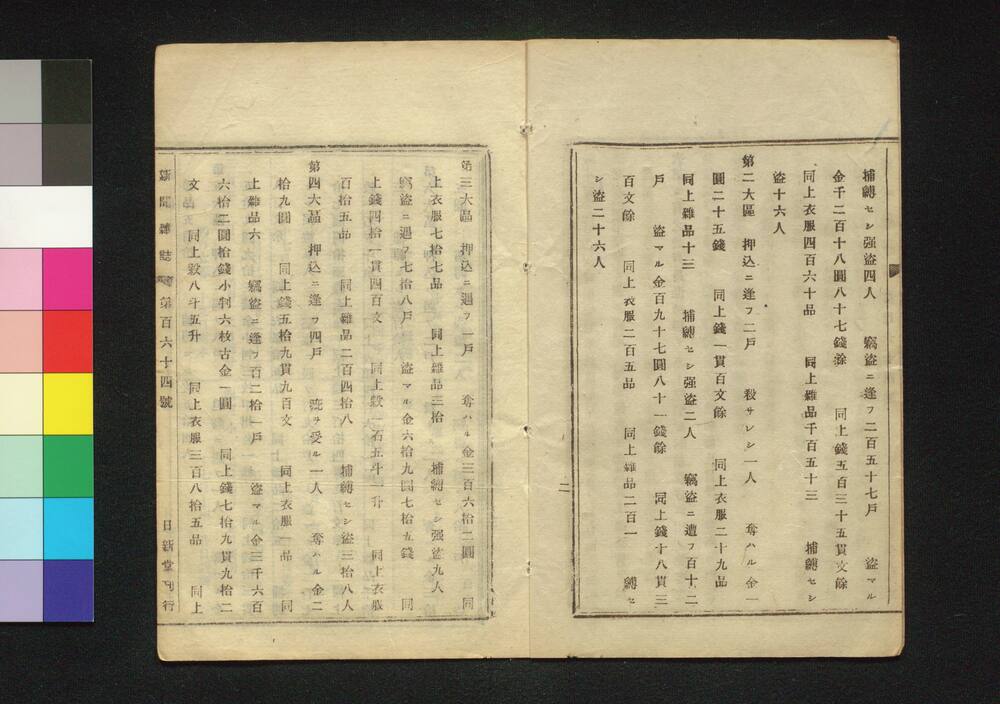 捕縛セシ强盗四人 竊盗ニ逢フ二百五十七戸 盗マル
金千二百十八圓八十七錢餘 同上錢五百三十五貫文餘
同上衣服四百六十品 同上雜品千百五十三 捕縛セシ
盗十六人
第二大區 押込ニ逢フ二戸 殺サレシ一人 奪ハル金一
圓二十五錢 同上錢一貫百文餘 同上衣服二十九品
同上雜品十三 捕縛セシ强盗二人 竊盗ニ遭フ百十二
戸 盗マル金百九十七圓八十一錢餘 同上錢十八貫三
百文餘 同上衣服二百五品 同上雜品二百一 縛セ
シ盗二十六人
二
第三大區 押込ニ遇フ一戸 奪ハル金三百六拾二圓 同
上衣服七拾七品 同上雜品三拾 捕縛セシ强盗九人
竊盗ニ遇フ七拾八戸 盗マル金六拾九圓七拾五錢 同
上錢四拾一貫四百文 同上穀一石五斗一升 同上衣服
百拾五品 同上雜品二百四拾八 捕縛セシ盗三拾八人
第四大區 押込ニ逢フ四戸 疵サ受ル一人 奪ハル金二
拾九圓 同上錢五拾九貫九百文 同上衣服一品 同
上雜品六 竊盗ニ逢フ百二拾一戸 盗マル金三千六百
六拾二圓拾錢小判六枚古金一圓 同上錢七拾九貫九拾二
文 同上穀八斗五升 同上衣服三百八拾五品 同上
新聞雜誌 第百六十四號 日新堂刊行